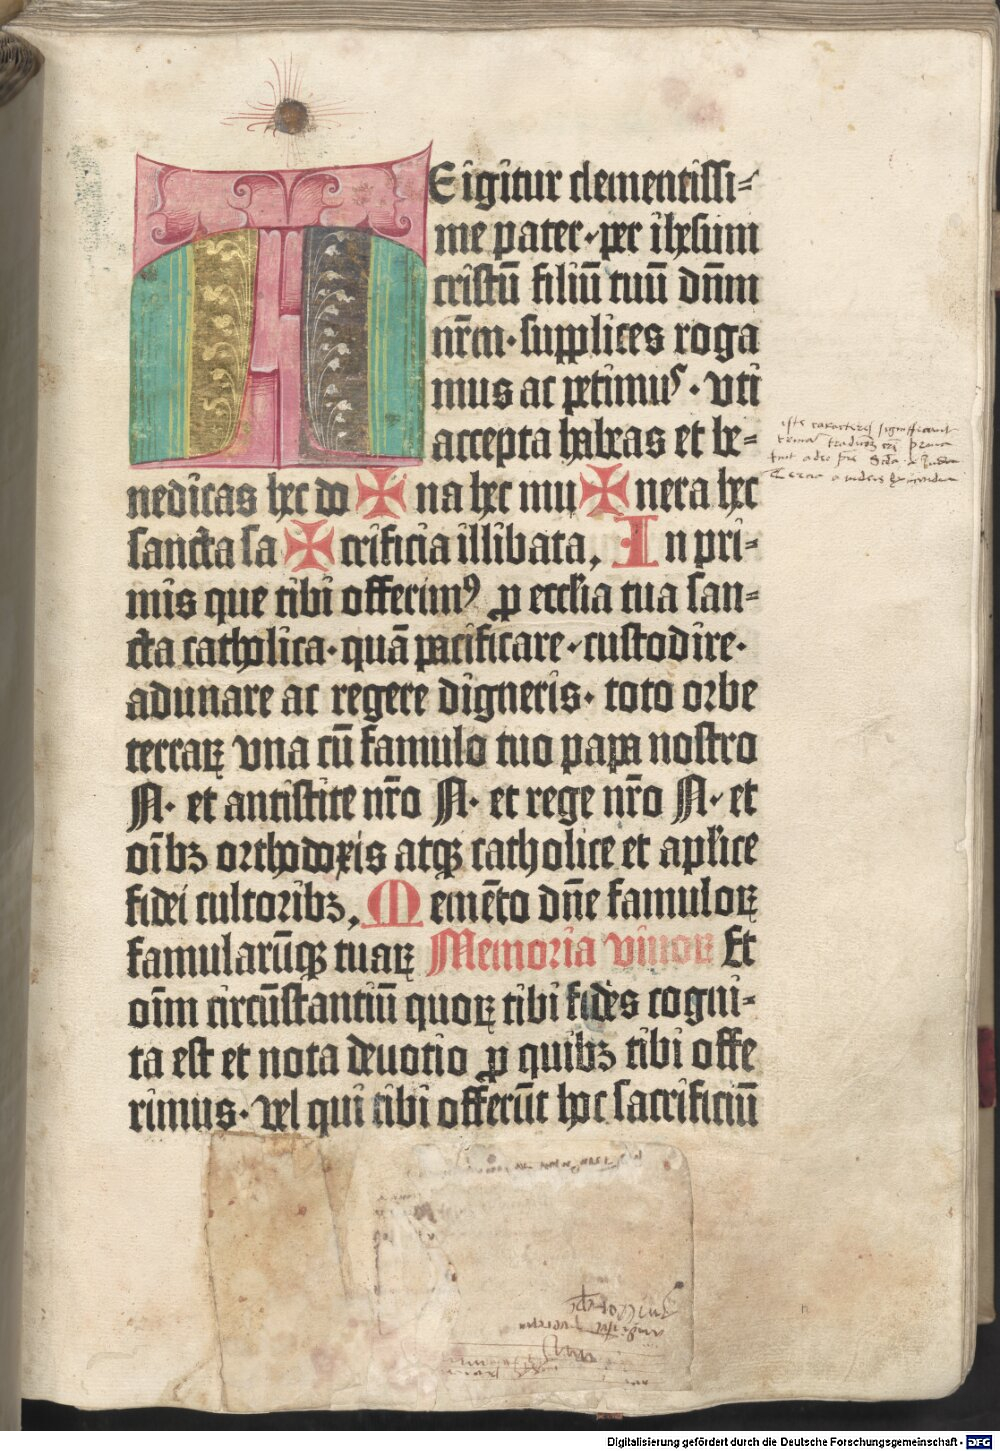 TE igitur clementissi⸗
me pater· per ihesum
cristū filiū tuū dn̄m
nr̄m· supplices roga
mus ac petimus· vti
accepta habeas et be⸗
nedicas hec do ✠ na hec mu ✠ nera hec
sancta sa ✠ crificia illibata, In pri⸗
mis que tibi offerimꝰ ꝓ ecclia tua san⸗
cta catholica· quā pacificare· custodire·
adunare ac regere digneris· toto orbe
terraꝝ vna cū famulo tuo papa nostro
N· et antistite nr̄o N· et rege nr̄o N· et
oībꝫ orthodoxis atqꝫ catholice et apl'ice
fidei cultoribꝫ, Memēto dn̄e famuloꝝ
famularūqꝫ tuaꝝ Memoria viuoꝝ Et
oīm circūstantiū quoꝝ tibi fides cogni⸗
ta est et nota deuotio ꝓ quibꝫ tibi offe
rimus· vel qui tibi offerūt hoc sacrificiū
iste caracteres significant
Digitalisierung gefördert durch die Deutsche Forschungsgemeinschaft - DFG